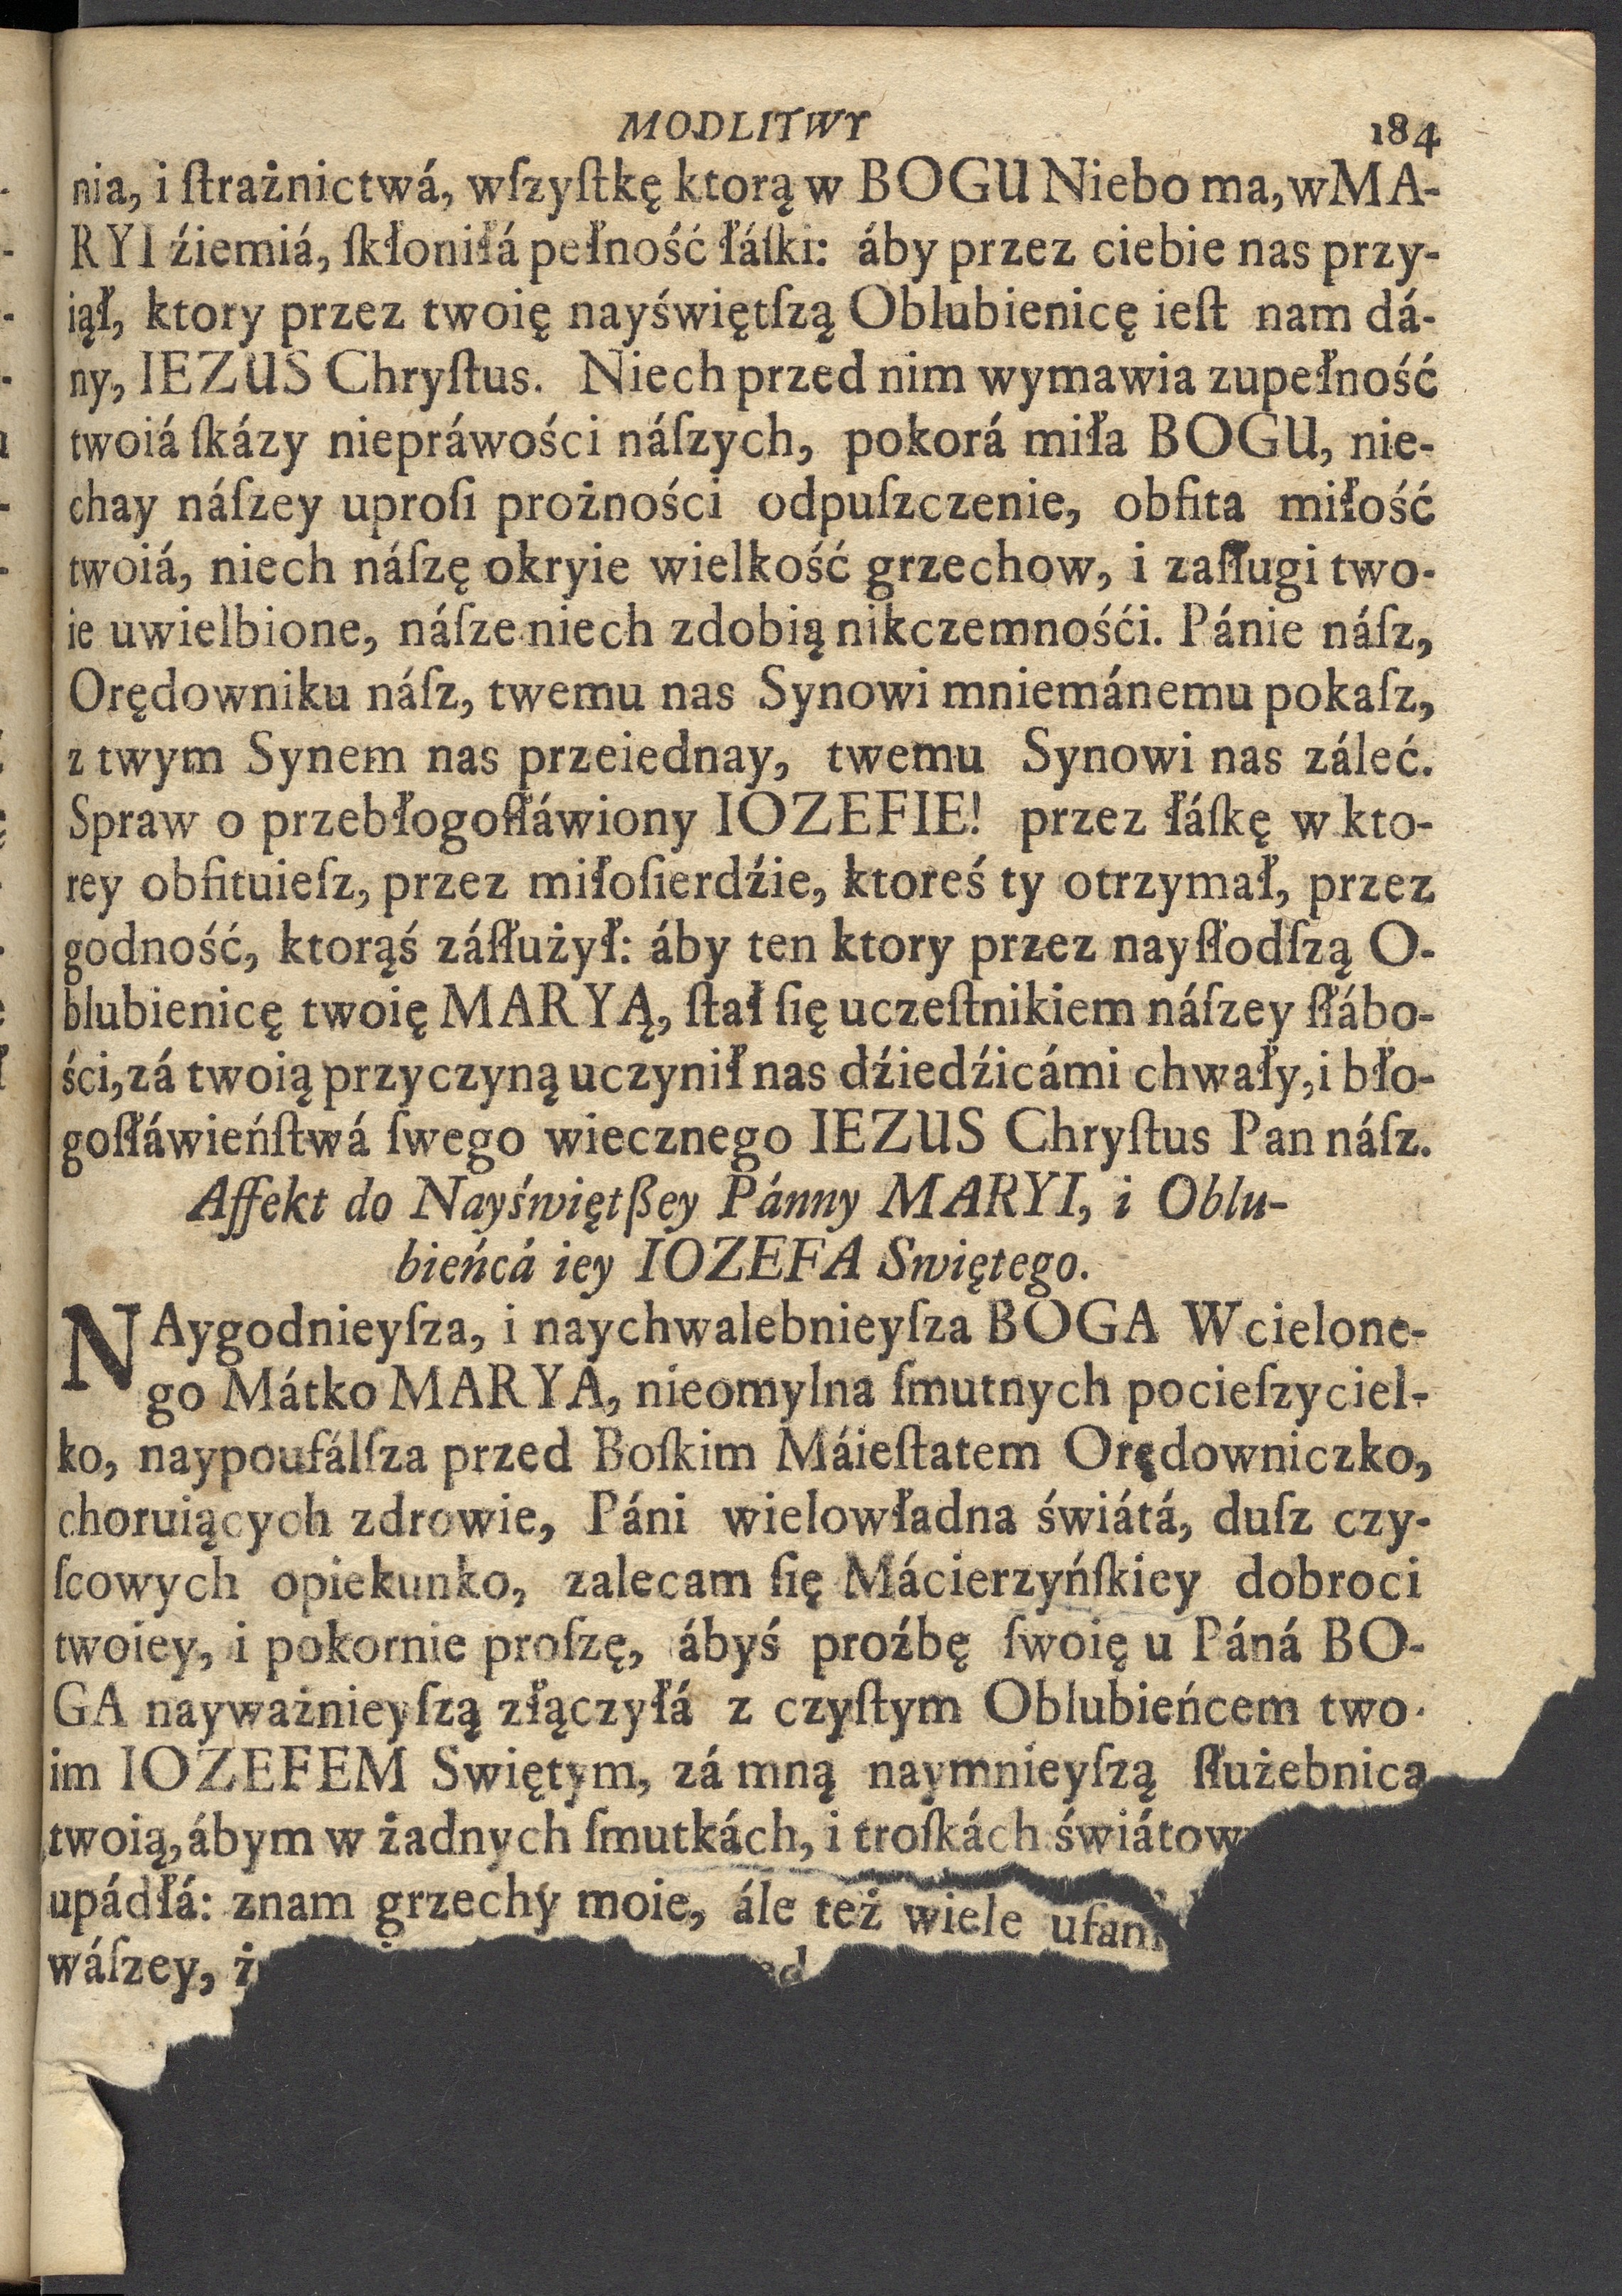 MODLITWY 184
nia, i ſtrażnictwá, wſzyſtkę ktorą w BOGU Niebo ma, w MA-
RYI źiemiá, ſkłoniłá pełność łáſki: áby przez ciebie nas przy-
iął, ktory przez twoię nayświętſzą Oblubienicę ieſt nam dá-
ny, IEZUS Chryſtus. Niech przed nim wymawia zupełność
twoiá ſkázy niepráwości náſzych, pokorá miła BOGU, nie-
chay náſzey uproſi prożności odpuſzczenie, obfita miłość
twoiá, niech náſzę okryie wielkość grzechow, i zaſługi two-
ie uwielbione, náſze niech zdobią nikczemnośći. Pánie náſz,
Orędowniku náſz, twemu nas Synowi mniemánemu pokaſz,
z twym Synem nas przeiednay, twemu Synowi nas záleć.
Spraw o przebłogoſłáwiony IOZEFIE! przez łáſkę w kto-
rey obfituieſz, przez miłoſierdźie, ktoreś ty otrzymał, przez
godność, ktorąś záſłużył: áby ten ktory przez nayſłodſzą O-
blubienicę twoię MARYĄ, ſtał ſię uczeſtnikiem náſzey ſłábo-
ści, zá twoią przyczyną uczynił nas dźiedźicámi chwały, i bło-
goſłáwieńſtwá ſwego wiecznego IEZUS Chryſtus Pan náſz.
Affekt do Nayświętßey Pánny MARYI, i Oblu-
bieńcá iey IOZEFA Swiętego.
NAygodnieyſza, i naychwalebnieyſza BOGA Wcielone-
go Mátko MARYA, nieomylna ſmutnych pocieſzyciel-
ko, naypoufálſza przed Boſkim Máieſtatem Orędowniczko,
choruiących zdrowie, Páni wielowładna świátá, duſz czy-
ſcowych opiekunko, zalecam ſię Mácierzyńſkiey dobroci
twoiey, i pokornie proſzę, ábyś proźbę ſwoię u Páná BO-
GA nayważnieyſzą złączyłá z czyſtym Oblubieńcem two-
im IOZEFEM Swiętym, zá mną naymnieyſzą ſłużebnicą
twoią, ábym w żadnych ſmutkách, i troſkách świátow
upádłá: znam grzechy moie, ále też wiele ufan
wáſzey,